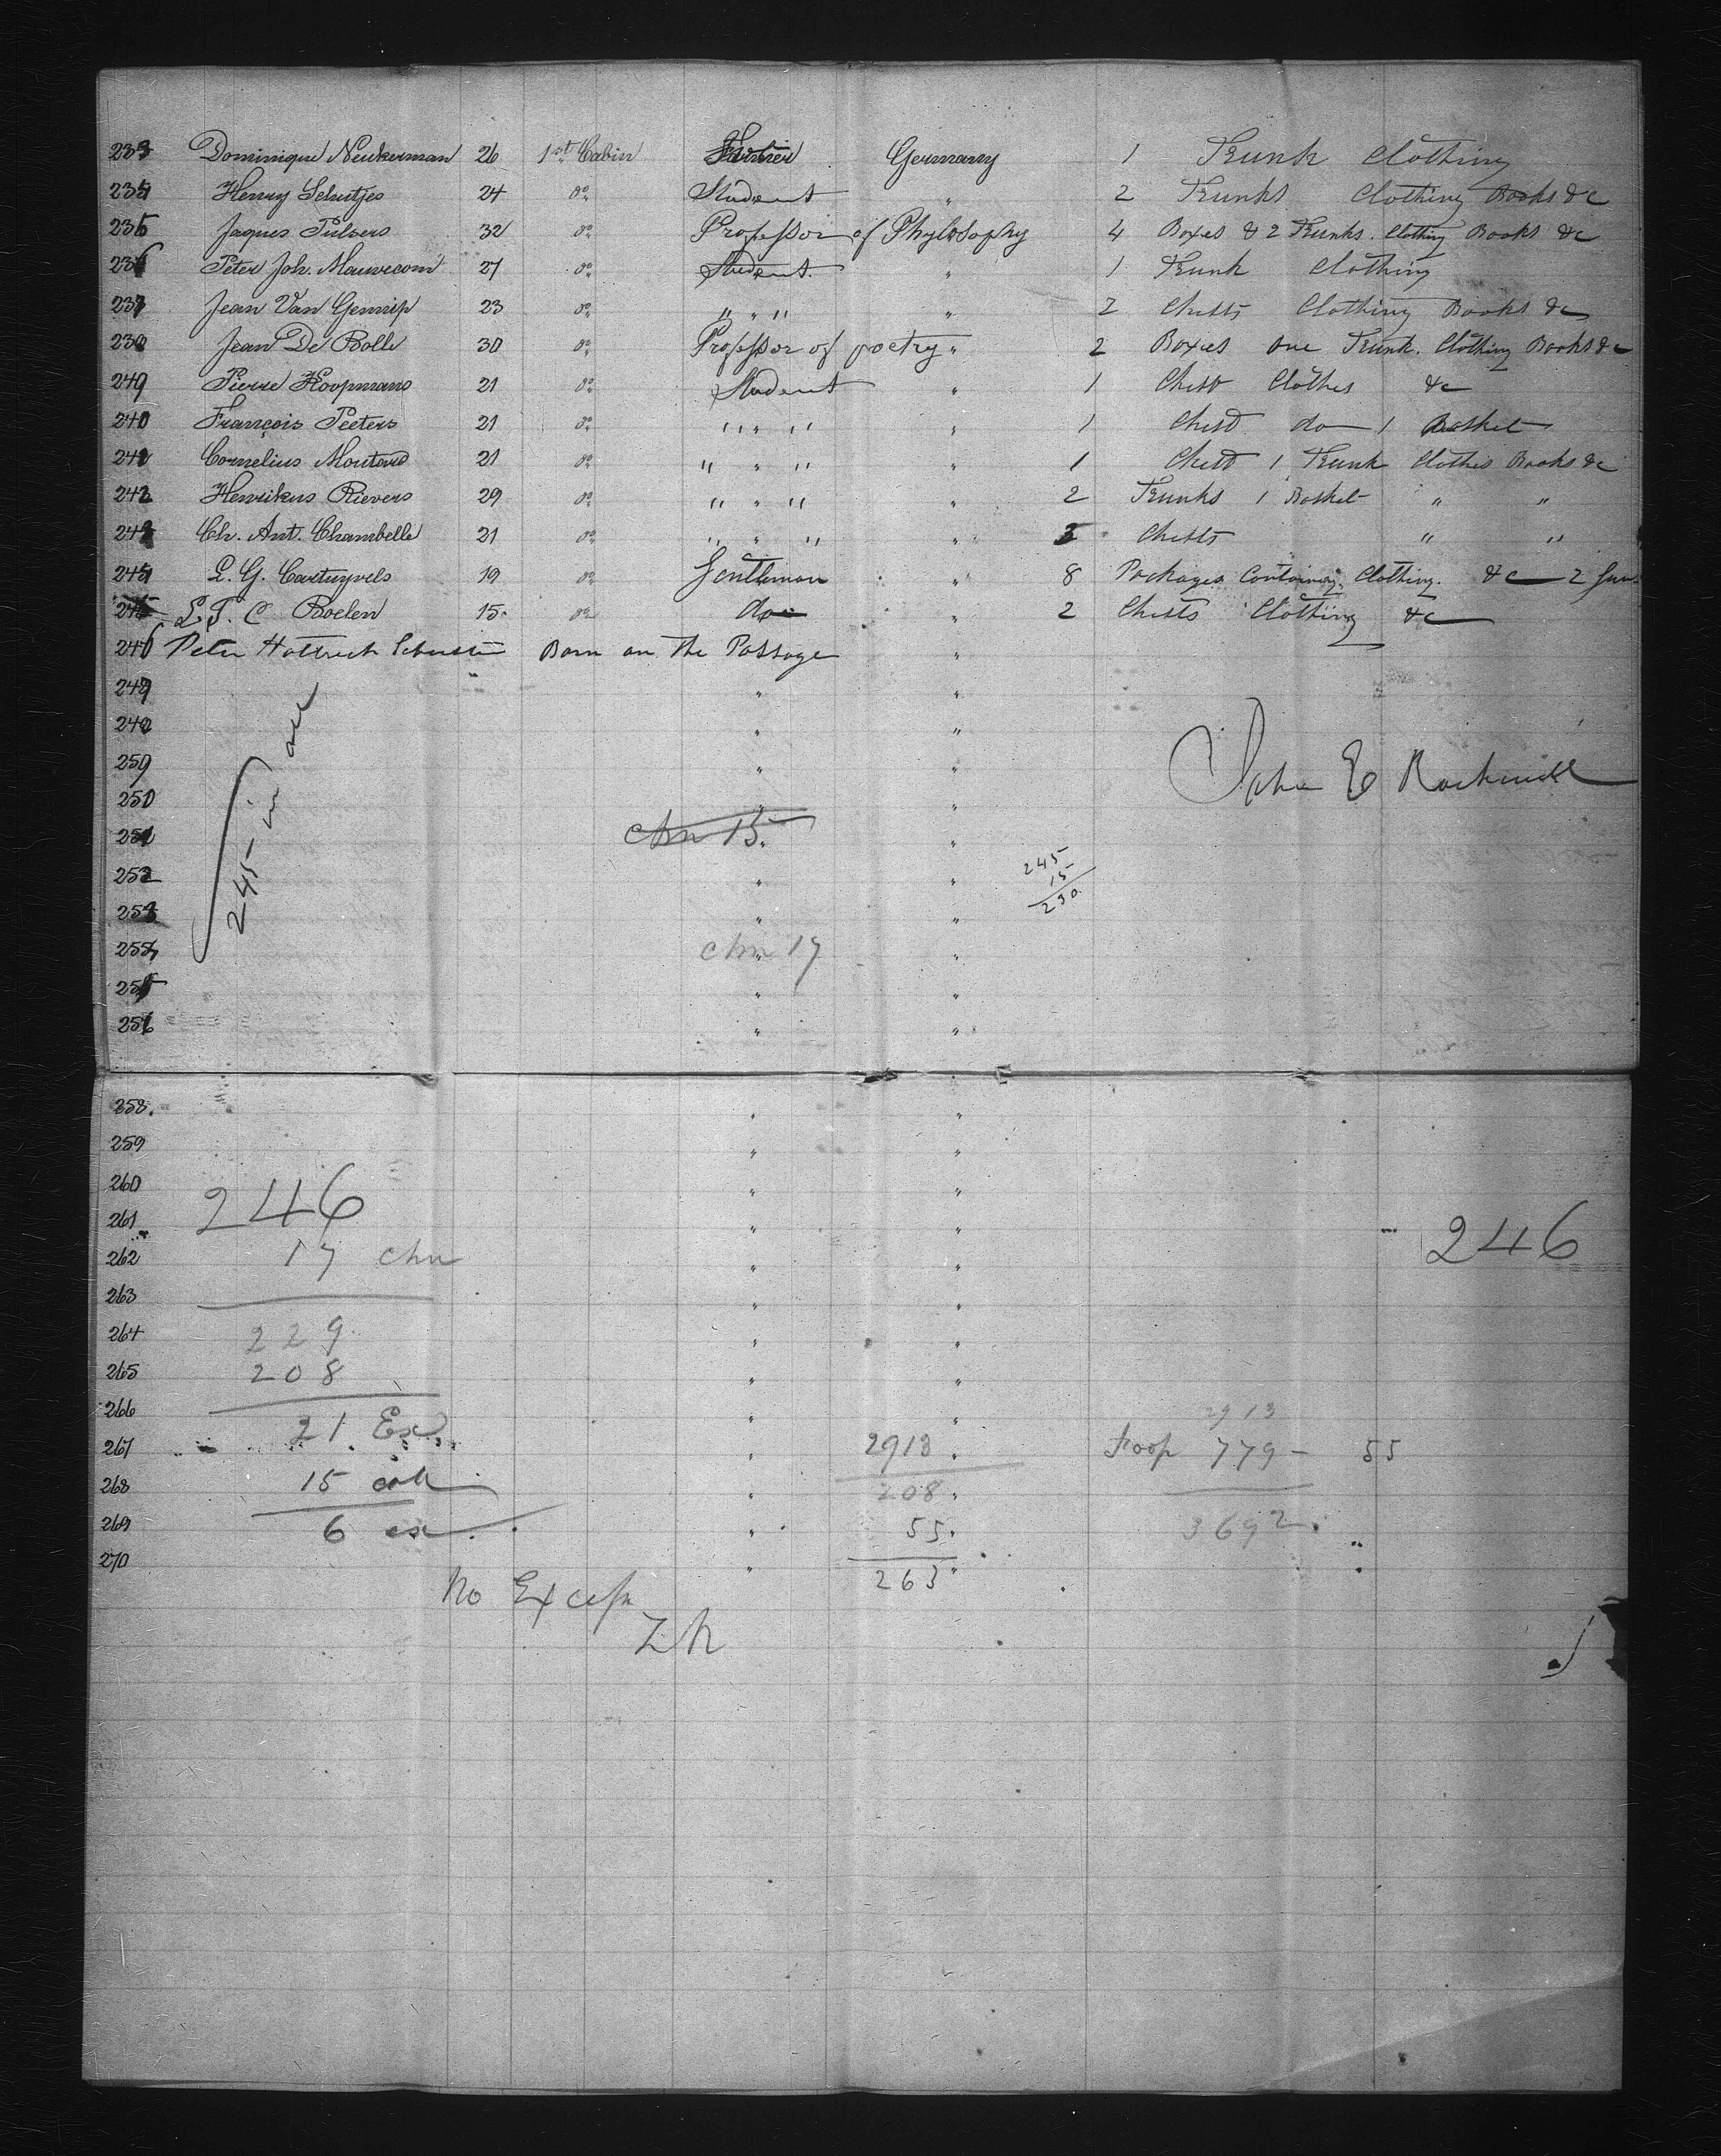 233 Dominique Neukerman 26 1st Cabin Germany 1 Trunk Clothing
234 Henry Schutjes 24 do Student " 2 Trunks Clothing Books &c
235 Jaques Pulsers 32 do Professor of Phylosophy 4 Boxes & 2 Trunks. Clothing Books &c
236 Peter Joh. 27 do Student " 1 Trunk Clothing
237 Jean Van Gennip 23 do " " " " 2 Chests Clothing Books &c
238 Jean De Bolle 30 do Professor of poetry " 2 Boxes one Trunk. Clothing Books &c
239 Pierre Koopmans 21 do Student " 1 Chest Clothes &c
240 François Peeters 21 do " " " " 1 Chest do 1 Basket
241 Cornelius 21 do " " " " 1 Chest 1 Trunk Clothes Books &c
242 Henrikus Rievers 29 do " " " " 2 Trunks 1 Basket " "
243 Ch. Ant. Chambelle 21 do " " " " Chests " "
244 L. G. Cartuyvels 19 do Gentleman " 8 Packages Containing Clothing. &c 2
245 Roelen 15 do do " 2 Chests Clothing &c
246 Peter Born on the Passage "
247 " "
248 " "
249 " "
John E Rockwell
250 " "
251 chn 15 " "
245 in all
252 " "
245
15
230
253 " "
254 chn 17 " "
255 " "
256 " "
258. " "
259 " "
260 " "
246
261 " "
246
262 17 chn " "
263 " "
264 229 " "
265 208 " "
266 " " 2913
21 Ex
267 " 2913 " 779 - 55
268 15 " 208 "
269 6 ex " 55 " 3692
270 " 263 "
No Excess